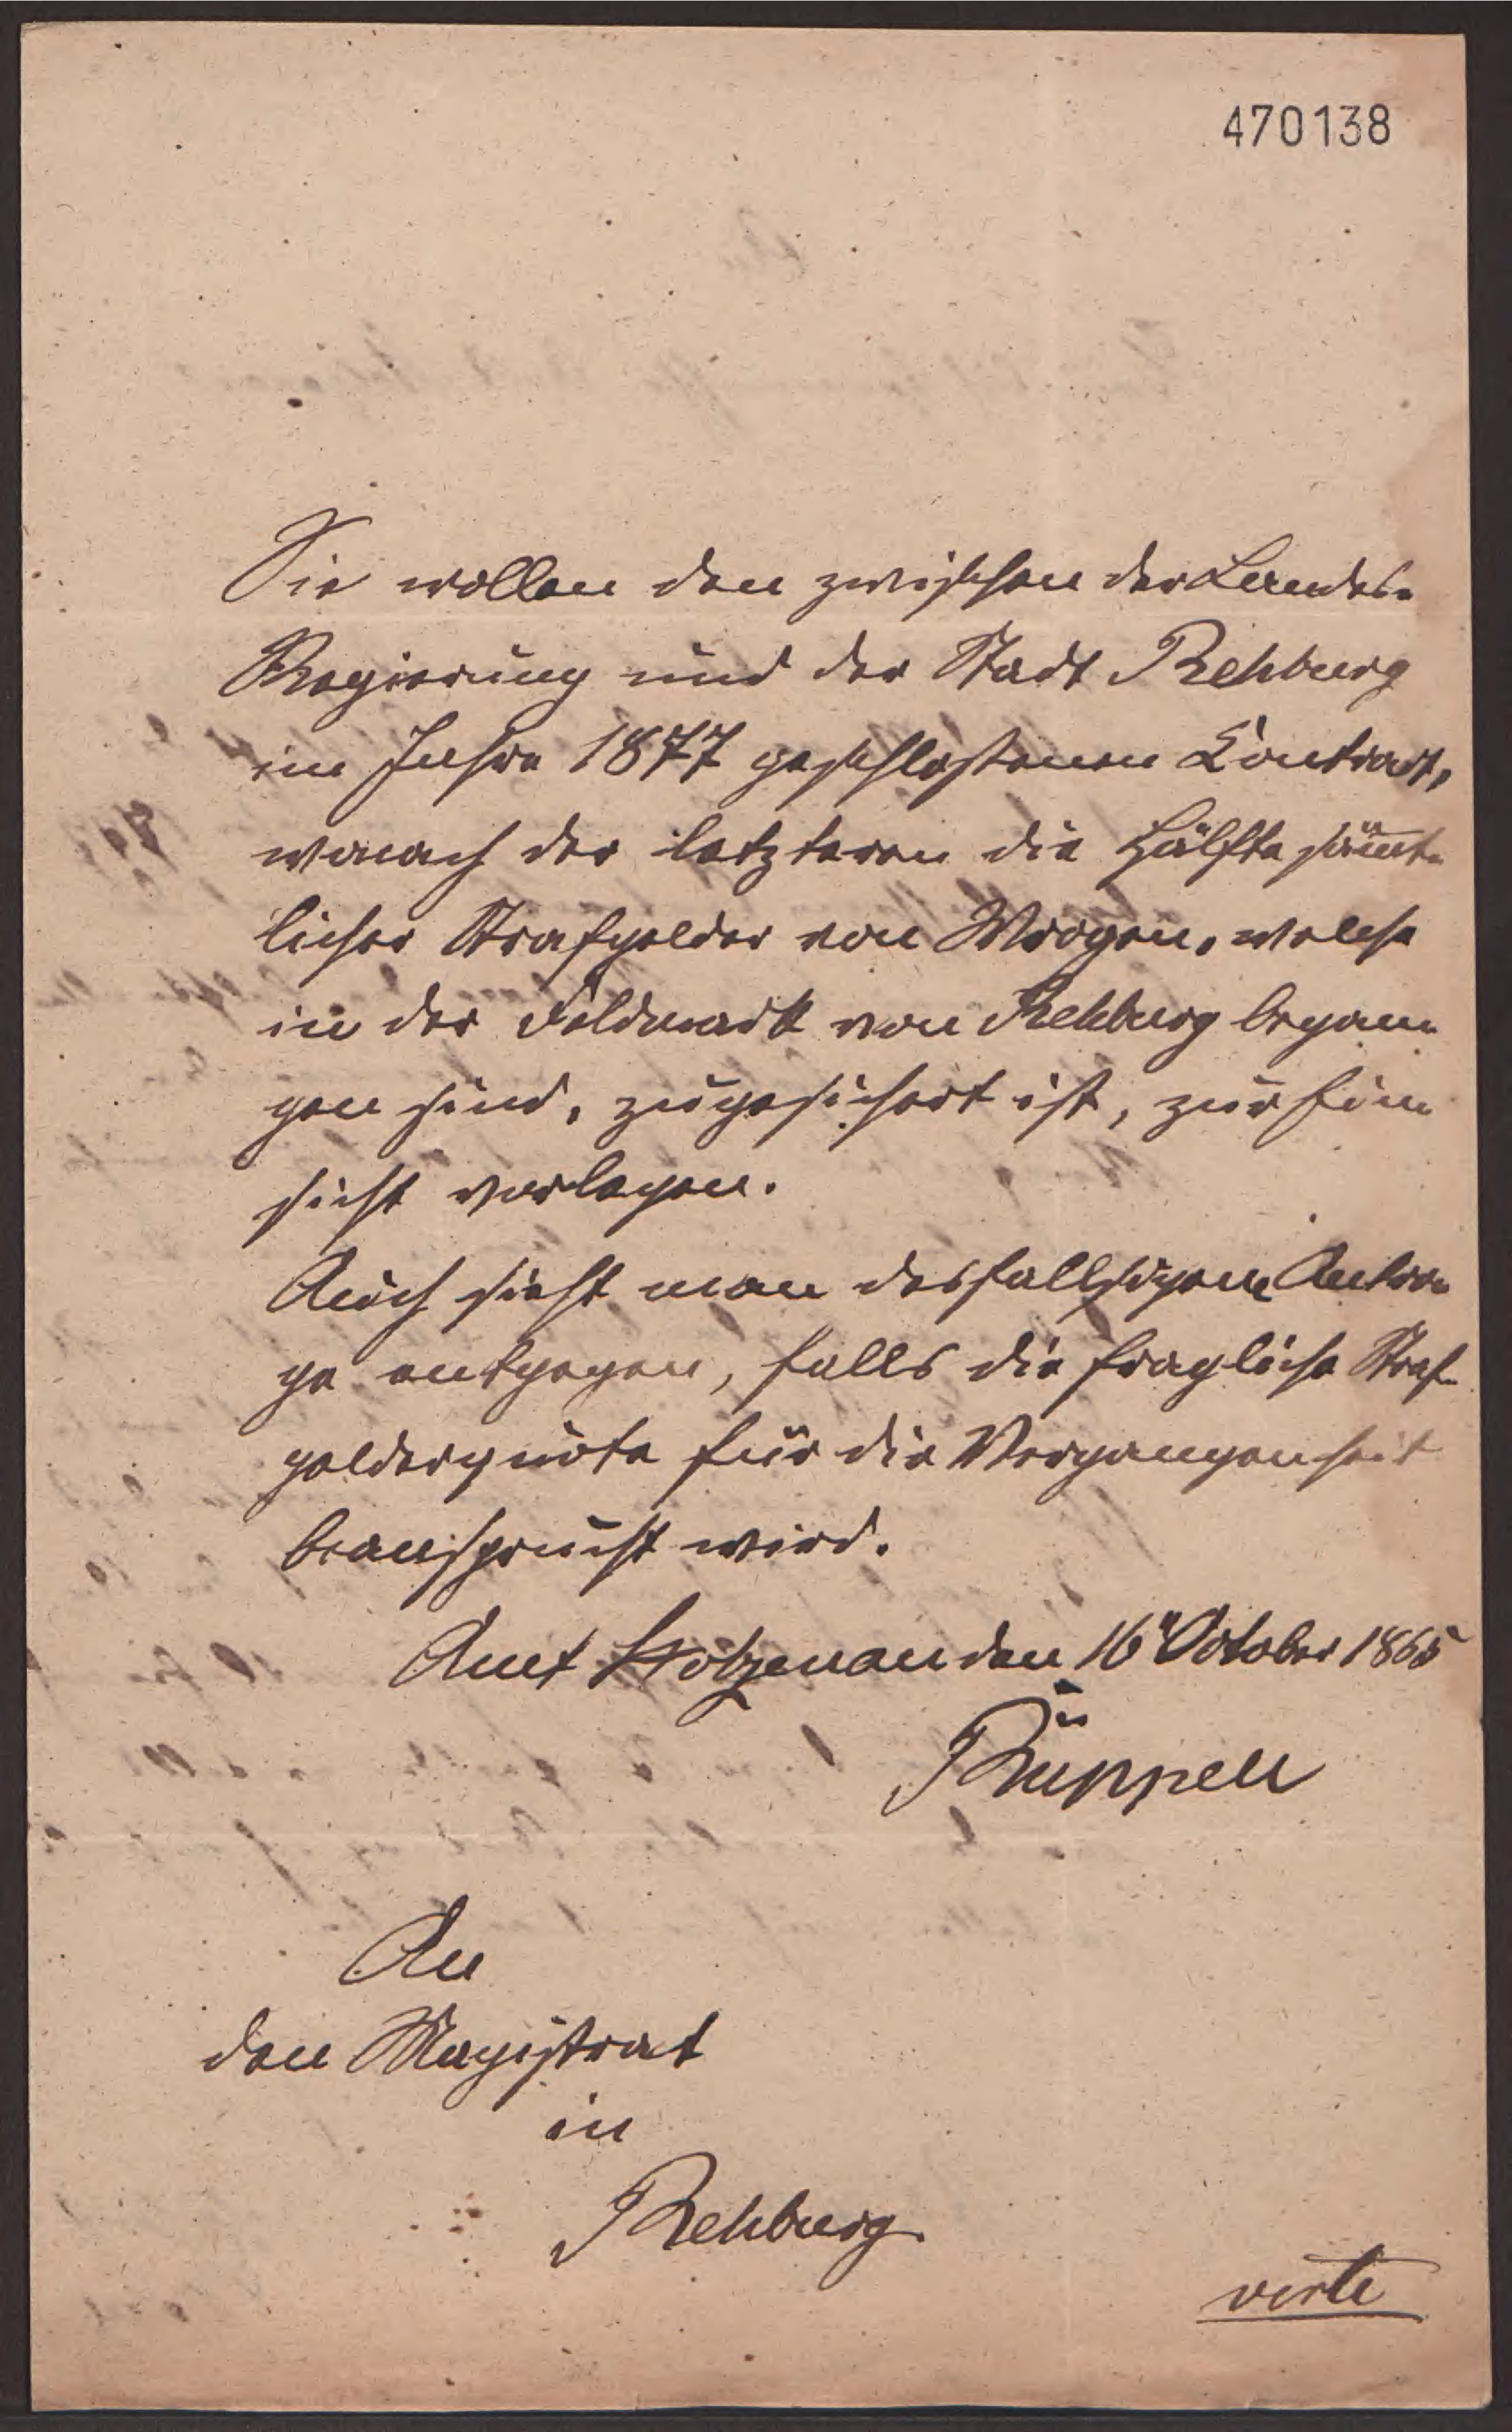 470138
Sie wollen den zwischen der Landes-
Regierung und der Stadt Rehburg
im Jahre 1877 geschlossenen Contract,
wonach der letzteren die Hälfte sämt-
licher Strafgelder von Wrogen, welche
in der Feldmark von Rehburg began-
gen sind, zugesichert ist, zur Ein-
sicht vorlegen.
Auch sieht man desfallsigem Antra-
ge entgegen, falls die fragliche Straf-
gelderquote für die Vergangenheit
beansprucht wird.
Amt Stolzenau den 16 October 1865
Rüppell
An
den Magistrat
in
Rehburg
verte